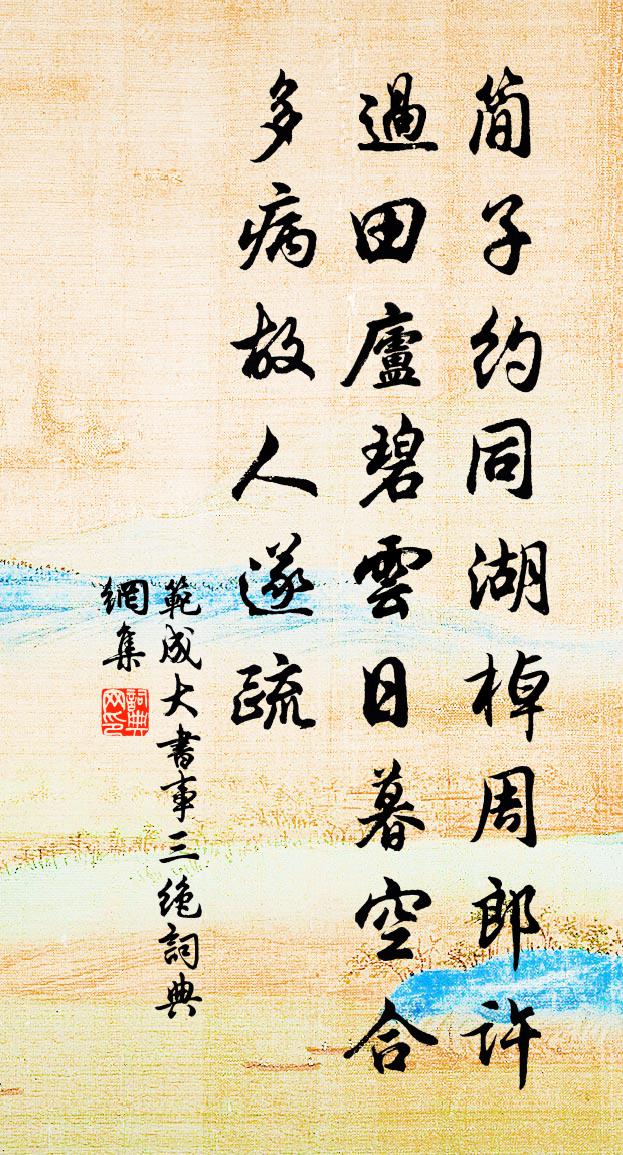 简子約同湖棹周郎許
過田廬碧雲日暮空合
多病故人遂疏
範成大書事三絶詞典
網集
詞典
網印